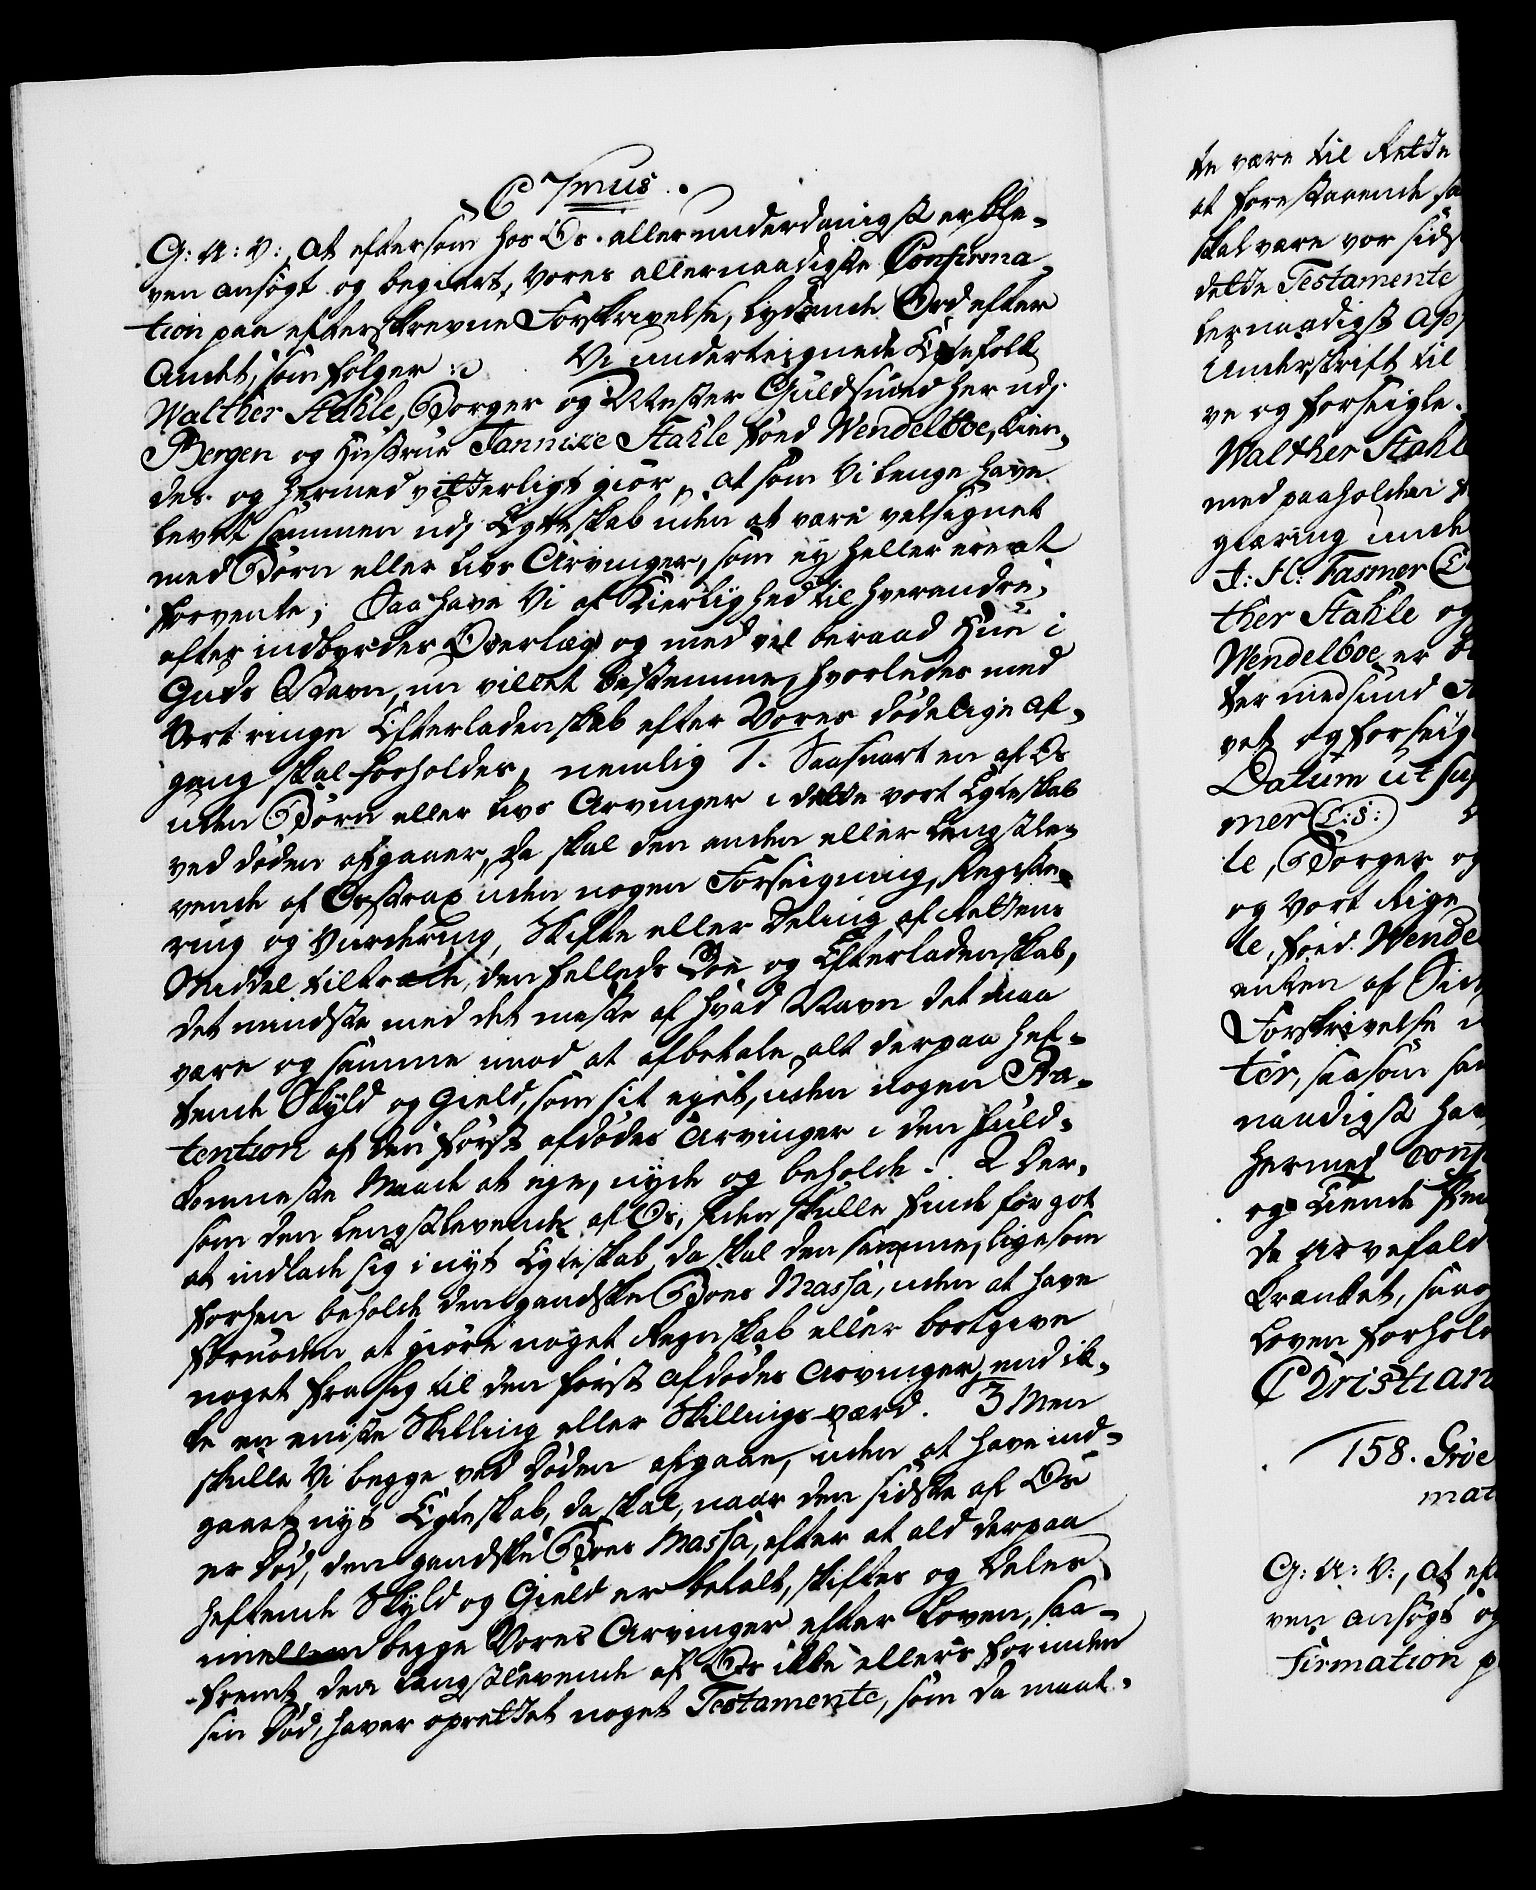 C 7mus.
G: A: V:, at eftersom hos Os allerunderdanigst er ble-
ven ansøgt og begiert, Vores allernaadigste Confirma-
tion paa efterskrevne Forskrivelse, lydende Ord efter
Andet, som følger :/: Vi underteignede Egtefolk
Walther Stahle, Borger og Mester Guldsmed her udj
Bergen og Hustrue Jannike Stahle, fød Wendelboe, kien-
des og hermed vitterligt giør, at som Vi lenge have
levet sammen udj Egteskab uden at være velsignet
med Børn eller livs Arvinger, som ey heller ere at
forvente; Saa have Vi af Kierlighed til hverandre,
efter indbyrdes Overlæg og med vel beraad Hue i
Guds Navn, nu villet bestemme, hvorledes med
Vort ringe Efterladenskab efter Vores dødelige Af-
gang skal forholdes, nemlig 1. Saasnart en af Os
uden Børn eller livs Arvinger i dette vort Egteskab
ved døden afgaaer, da skal den anden eller lengstle-
vende af Os strax uden nogen Forseigning, Registe-
ring og Vurdering, Skifte eller Deling af Rettens
Middel tiltræde, den felleds Boe og Efterladenskab,
det mindste med det meste af hvad Navn det maa
være og samme imod at afbetale alt derpaa hef-
tende Skyld og Gield, som sit eget, uden nogen Præ-
tention af den først afdødes Arvinger i den fuld-
komneste Maade at eye, nyde og beholde. 2 Der-
som den lengstlevende af Os, siden skulle finde for got
at indlade sig i nyt Egteskab, da skal den samme, ligesom
forhen beholde den gandske Boes Massa, uden at have
fornøden at giøre noget Regnskab eller bortgive
noget fra sig til den først afdødes Arvinger, end ik-
ke en eniste Skilling eller Skillings værd. 3 Men
skulle Vi begge ved Døden afgaae, uden at have ind-
gaaet nyt Egteskab, da skal, naar den sidste af Os
er Død, den gandske Boes Massa, efter at ald derpaa
heftende Skyld og Gield er betalt, skiftes og deles
imellem begge Vores Arvinger efter Loven, saa-
fremt den lengstlevende af Os ikke ellers forinden
sin Død, haver oprettet noget Testamente, som da maat-
te være til Rette
at forestaaende sa
skal være vor sids
dette Testamente
lernaadigst ap
Underskrift til
ve og forseigle.
Walther Stahl
med paaholden
glæring unde
J: H: Fasmer
ther Stahle og
Wendelboe er
ter med sund
vet og forseig
Datum ut sup
mer (L: S:)
le, Borger og
og Vort Rige
le, fød Wende
enken af
Forskrivelse
ter, saasom sa
naadigst ha
hermed conf
og kiende
de Arvefald
krænket, saa
Loven forhold
Christian
158. Grøe
mat
G: A: V:, at eft
ven ansøgt og
firmation p